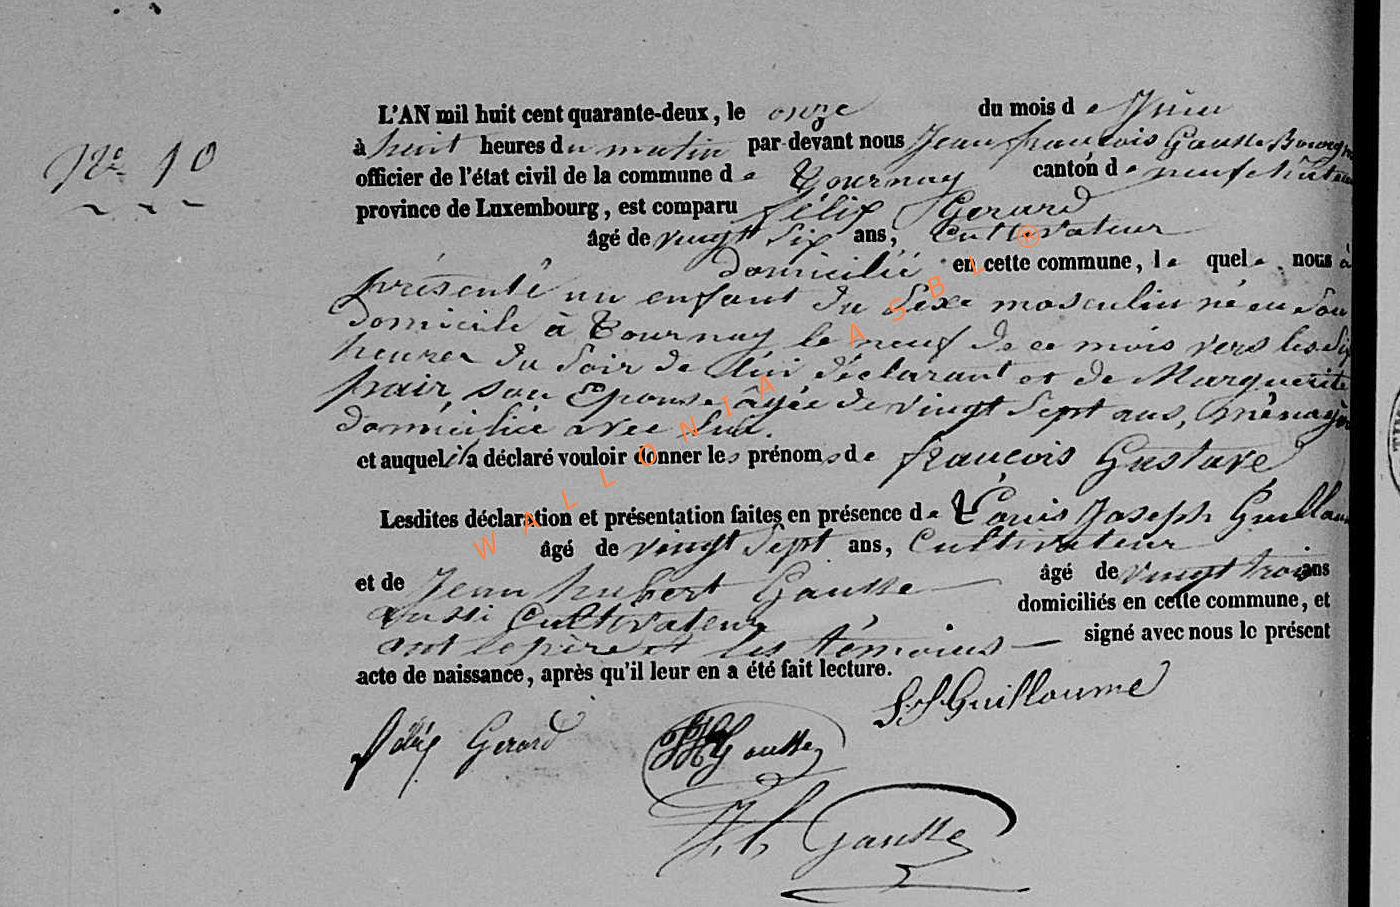 L'AN mil huit cent quarante-deux, le onze du mois de Juin
N° 10
à huit heures du matin par-devant nous Jean françois Gausse Bourgm
officier de l'état civil de la commune de Tournay canton de neufchâteau
province de Luxembourg, est comparu félix Gerard
âgé de vingt six ans, Cultivateur
domicilié en cette commune, le quel nous à
présenté un enfant du séxe masculin né en son
domicile à Tournay le neuf de ce mois vers les six
heures du soir de lui déclarant et de Marguerite
, son Epouse âgée de vingt sept ans, ménagèr
domiciliée avec lui.
et auquel il a déclaré vouloir donner les prénoms de françois Gustave
Lesdites déclaration et présentation faites en présence de Louis Joseph Guillaum
âgé de vingt sept ans, Cultivateur
et de Jean hubert Gausse âgé de vingt trois ans
aussi Cultivateur domiciliés en cette commune, et
ont le père et les témoins signé avec nous le présent
acte de naissance, après qu'il leur en a été fait lecture.
LJ Guillaume
félix Gerard
JH Gausse
J.f. Gausse
WALLONIA ASBL ®